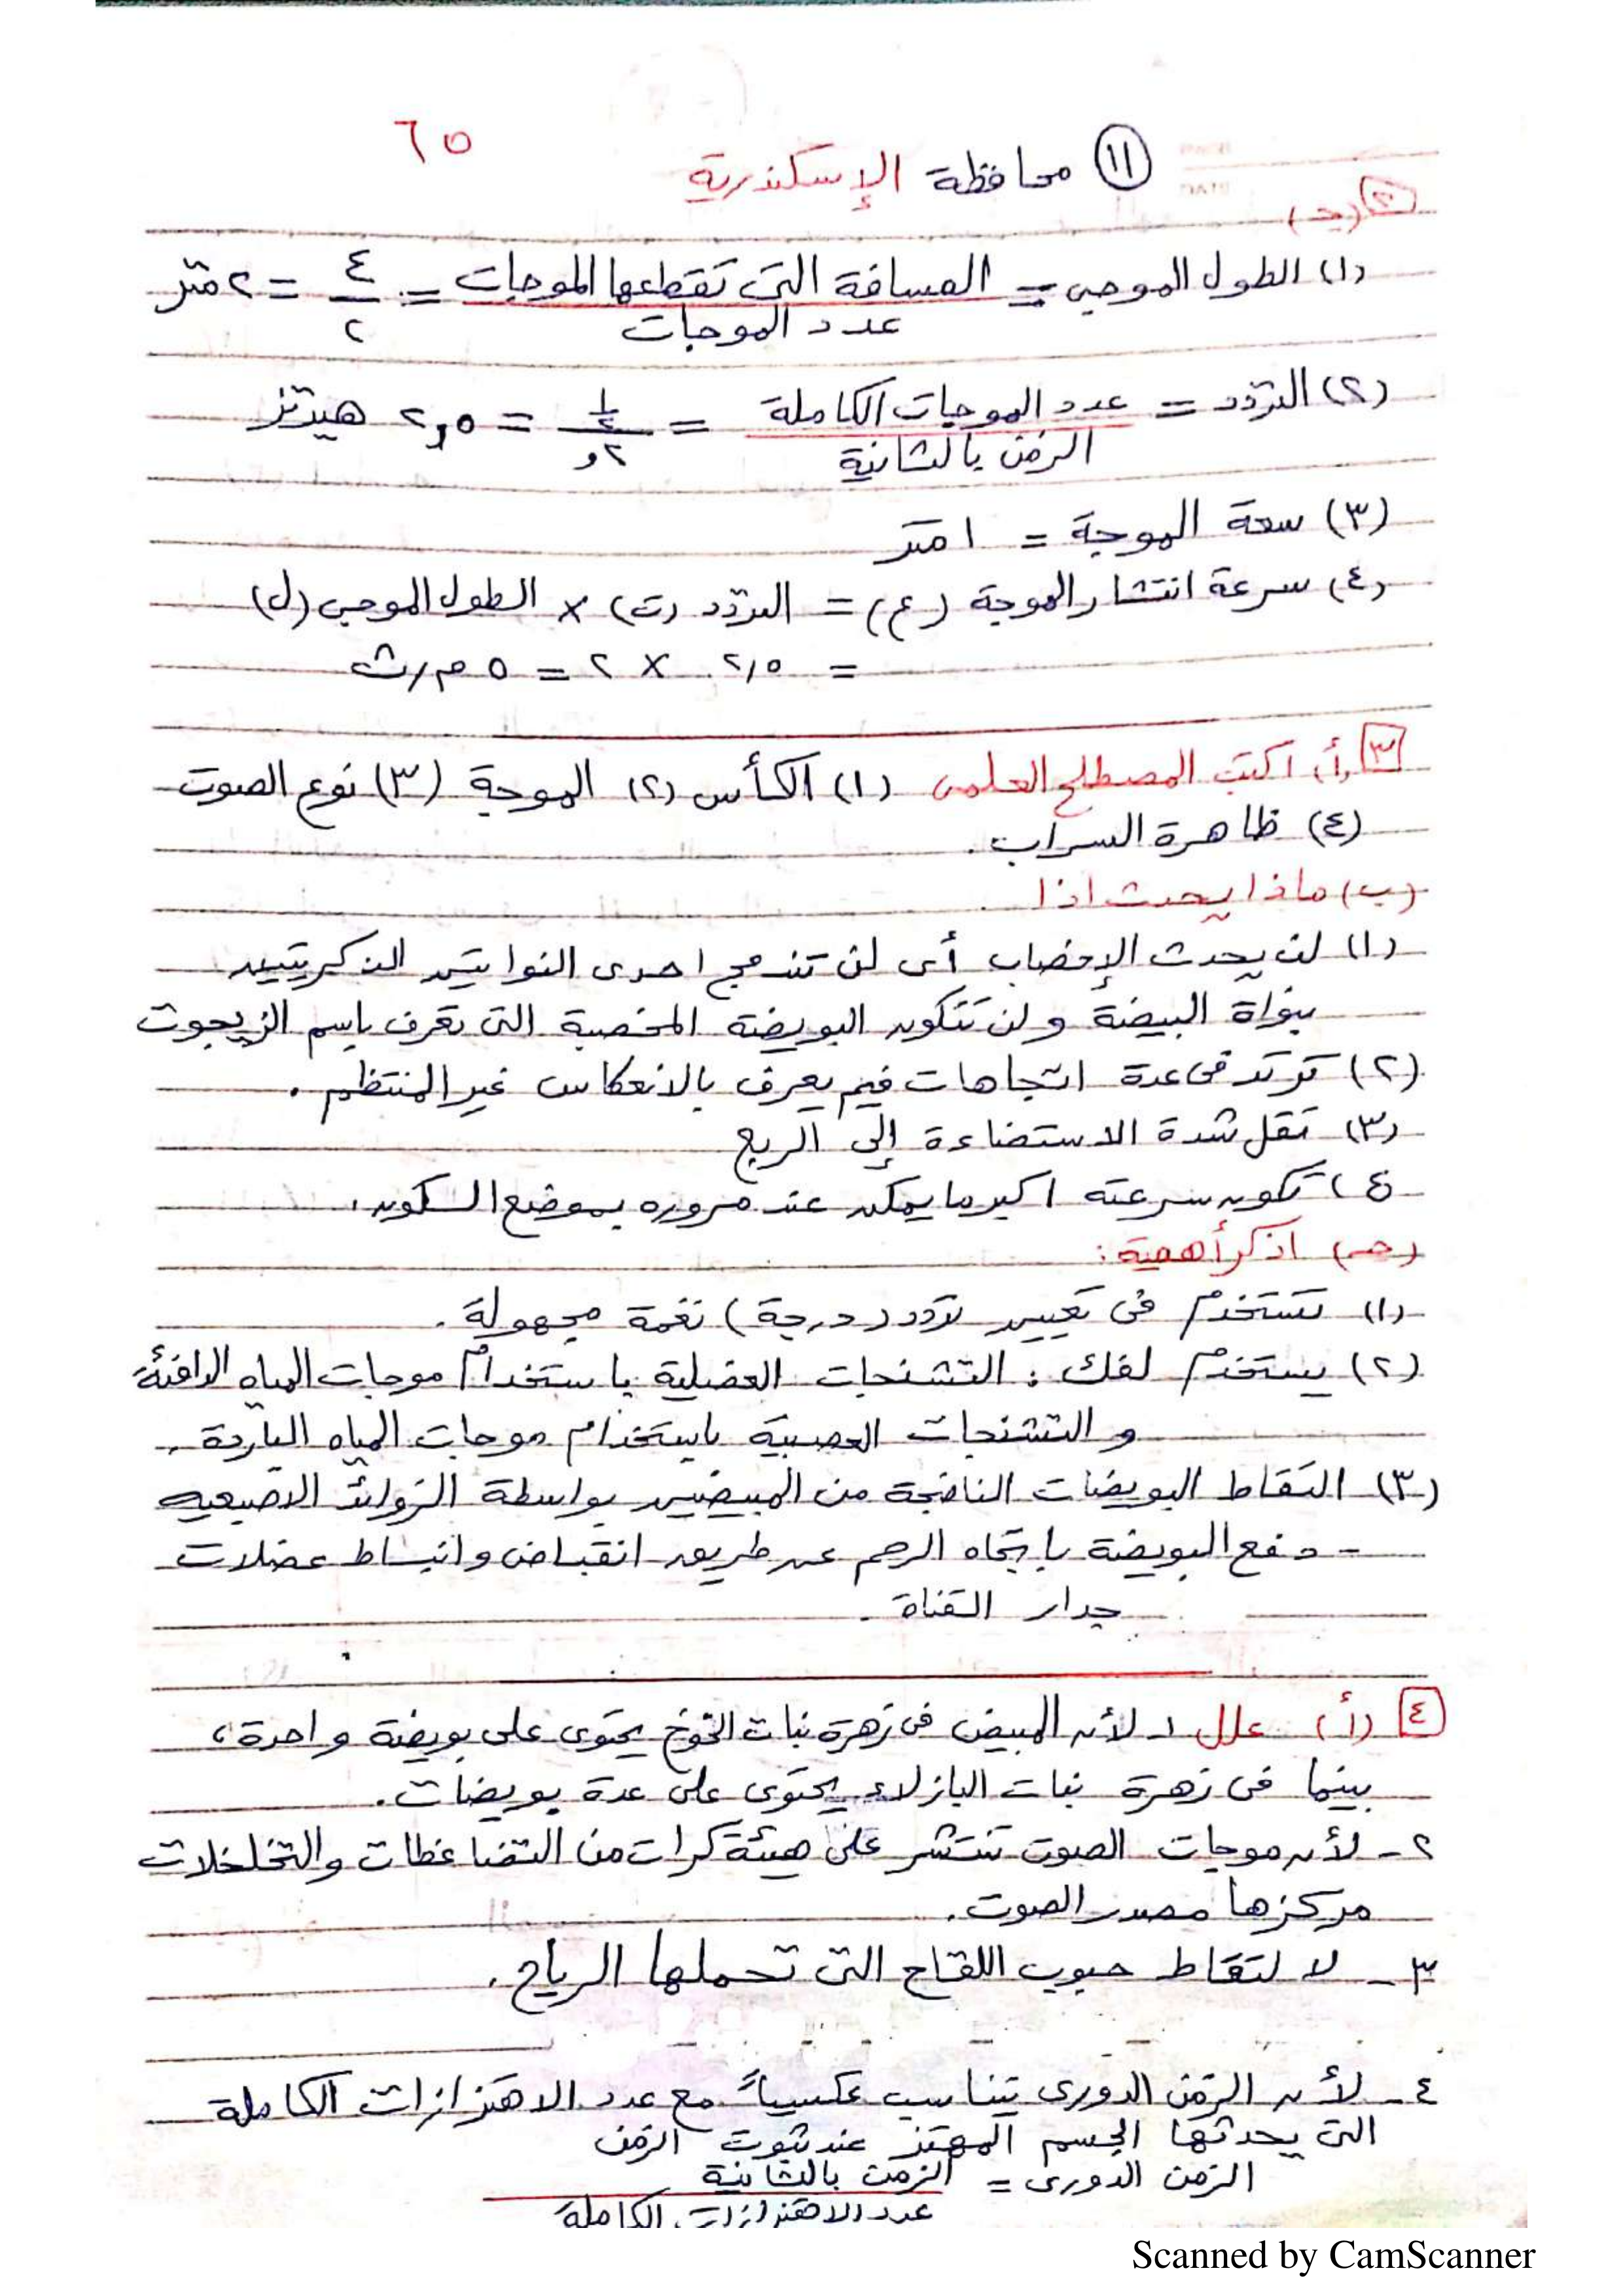 ٦٥
(١١) محافظة الإسكندرية
[٢] (جـ)
(١) الطول الموجى = المسافة التى تقطعها الموجات / عدد الموجات = ٤ / ٢ = ٢ متر
(٢) التردد = عدد الموجات الكاملة / الزمن بالثانية = = ٢,٥ هيرتز
(٣) سعة الموجة = ١ متر
(٤) سرعة انتشار الموجة (ع) = التردد (ت) × الطول الموجى (ل)
= ٢,٥ × ٢ = ٥ م/ث
[٣] (أ) اكتب المصطلح العلمى (١) الكأس (٢) الموجة (٣) نوع الصوت
(٤) ظاهرة السراب.
(ب) ماذا يحدث إذا
(١) لن يحدث الإخصاب أى لن تندمج احدى النواتين الذكريتين
بنواة البيضة ولن تتكون البويضة المخصبة التى تعرف باسم الزيجوت
(٢) ترتد فى عدة اتجاهات فيم يعرف بالانعكاس غير المنتظم.
(٣) تقل شدة الاستضاءة إلى الربع
٤) تكون سرعته اكبر ما يمكن عند مروره بموضع السكون.
(جـ) اذكر أهمية:
(١) تستخدم فى تعيين تردد (درجة) نغمة مجهولة.
(٢) يستخدم لفك: التشنجات العضلية باستخدام موجات المياه الدافئة
والتشنجات العصبية باستخدام موجات المياه الباردة.
(٣) التقاط البويضات الناضجة من المبيضين بواسطة الزوائد الاصبعيه
- دفع البويضة باتجاه الرحم عن طريق انقباض وانبساط عضلات
جدار القناة.
[٤] (أ) علل ١- لأن المبيض فى زهرة نبات الخوخ يحتوى على بويضة واحدة،
بينما فى زهرة نبات البازلاء يحتوى على عدة بويضات.
٢- لأن موجات الصوت تنتشر على هيئة كرات من التضاغطات والتخلخلات
مركزها مصدر الصوت.
٣- لالتقاط حبوب اللقاح التى تحملها الرياح.
٤- لأن الزمن الدورى يتناسب عكسياً مع عدد الاهتزازات الكاملة
التى يحدثها الجسم المهتز عند ثبوت الزمن
الزمن الدورى = الزمن بالثانية
عدد الاهتزازات الكاملة
Scanned by CamScanner